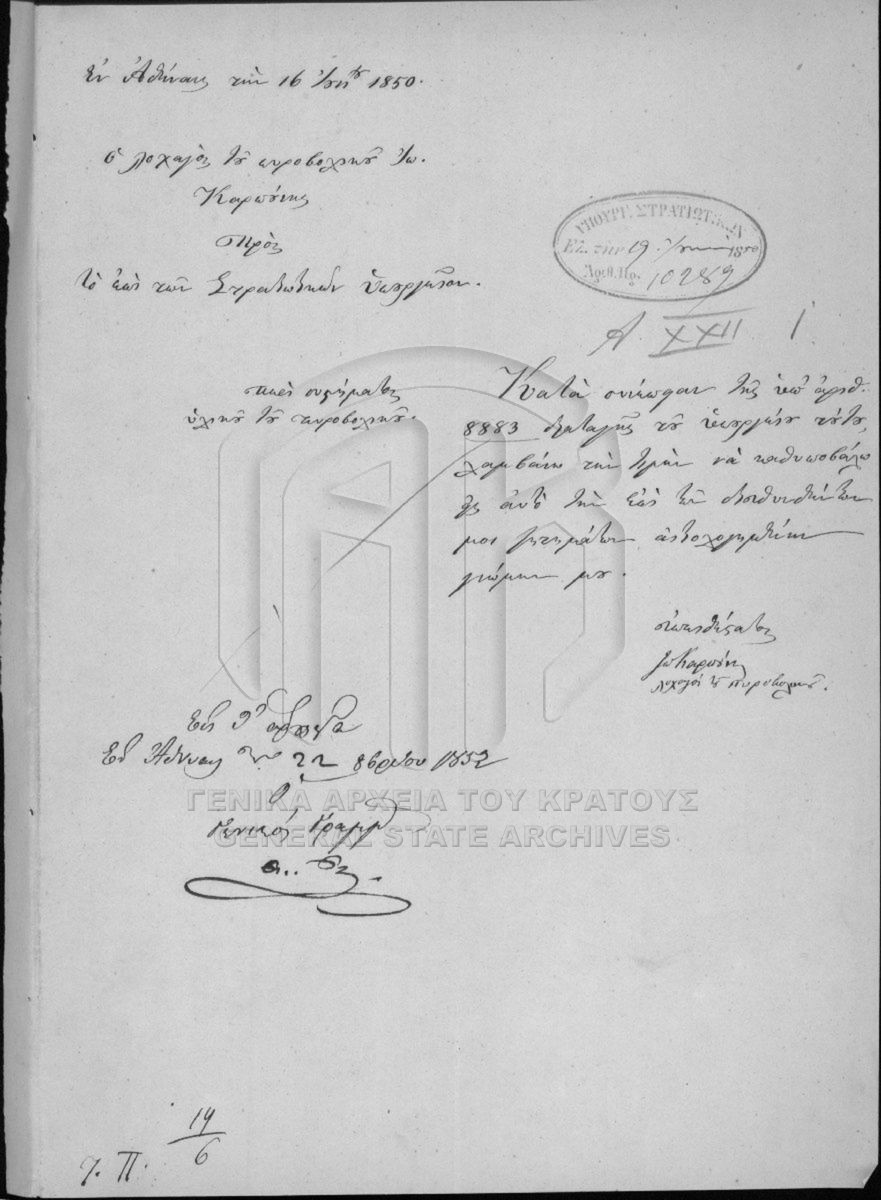 Ἐν Ἀθήναις τῇ 16 1850.
Ὁ λοχαγὸς τοῦ πυροβολικοῦ Ἰω.
Καρπούνης
Πρὸς
Τὸ ἐπὶ τῶν Στρατιωτικῶν Ὑπουργεῖον.
ΥΠΟΥΡΓ. ΣΤΡΑΤΙΩΤΙΚΩΝ
Ἐλ. τὴν 19 1850
Ἀριθ. Πρ. 10289
Α XXII 1
Περὶ συστήματος
ὑλικοῦ τοῦ πυροβολικοῦ.
Κατὰ συνέπειαν τῆς ὑπ' ἀριθ.
8883 διαταγῆς τοῦ Ὑπουργείου τούτου,
λαμβάνω τὴν τιμὴν νὰ καθυποβάλω
εἰς αὐτὸ τὴν ἐπὶ τῶν διευθυνθέντων
μοι ζητημάτων
γνώμην μου.
Εὐπειθέστατος
λοχαγὸς τοῦ πυροβολικοῦ.
Εἰς τὰ ἀρχεῖα
Ἐν Ἀθήναις τὴν 22 8βρίου 1852
Ὁ
Γενικὸς Γραμμ
ΓΕΝΙΚΑ ΑΡΧΕΙΑ ΤΟΥ ΚΡΑΤΟΥΣ
GENERAL STATE ARCHIVES
14
6
Π.